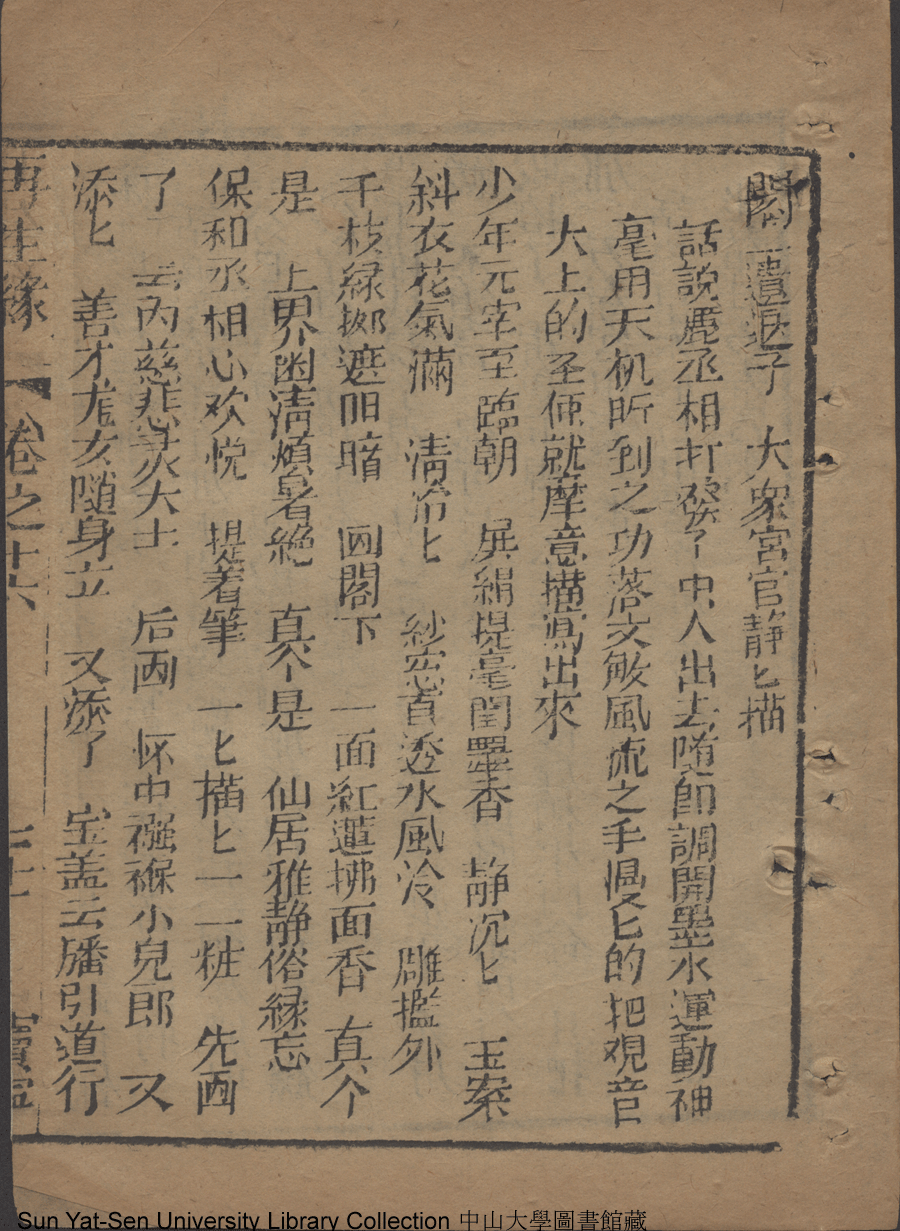 閣一遣退子　大衆宮官静匕描
話說鹿丞相打發了中人出去随即調開墨水運動神
毫用天机昕到之功落文敏風流之手慢匕的把观音
大士的圣像就摩意描寫出來
少年元宰至臨朝　展絹提毫聞墨香　静沉匕　玉案
斜衣花氣滿　清冷匕　紗窓直透水風泠　雕檻外
千枝緑挷遮阳暗　図閣下　一面紅蓮拂面香　真个
是　上界幽清煩暑絶　真个是　仙居雅静俗緑忘
保和丞相心欢悅　提着筆　一匕描匕一一粧　先画
了　云内慈悲灵大士　后画　怀中襁褓小兒郎　又
添匕　善才龙女随身立　又添了　宝盖云旛引道行
再生緣　卷之十六　宝
Sun Yat-Sen University Library Collection 中山大學圖書館藏